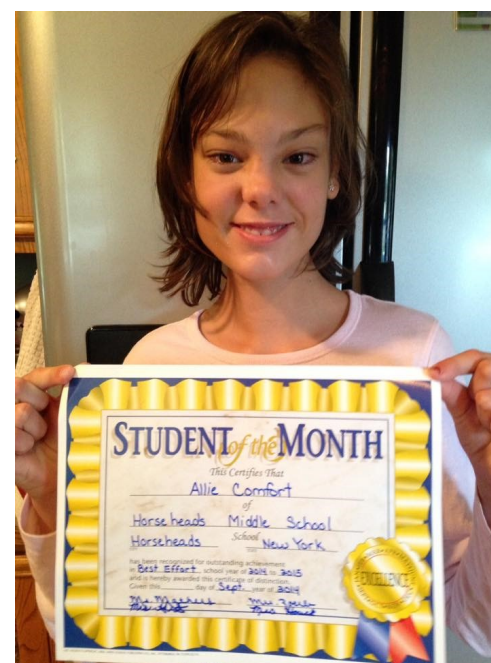 STUDENT of the MONTH
This Certifies That
Allie Comfort
of
Horseheads Middle School
School
Horseheads New York
has been recognized for outstanding achievement
in Best Effort, school year of 2014 to 2015
and is hereby awarded this certificate of distinction.
Given this day of Sept. year of 2014
EXCELLENCE